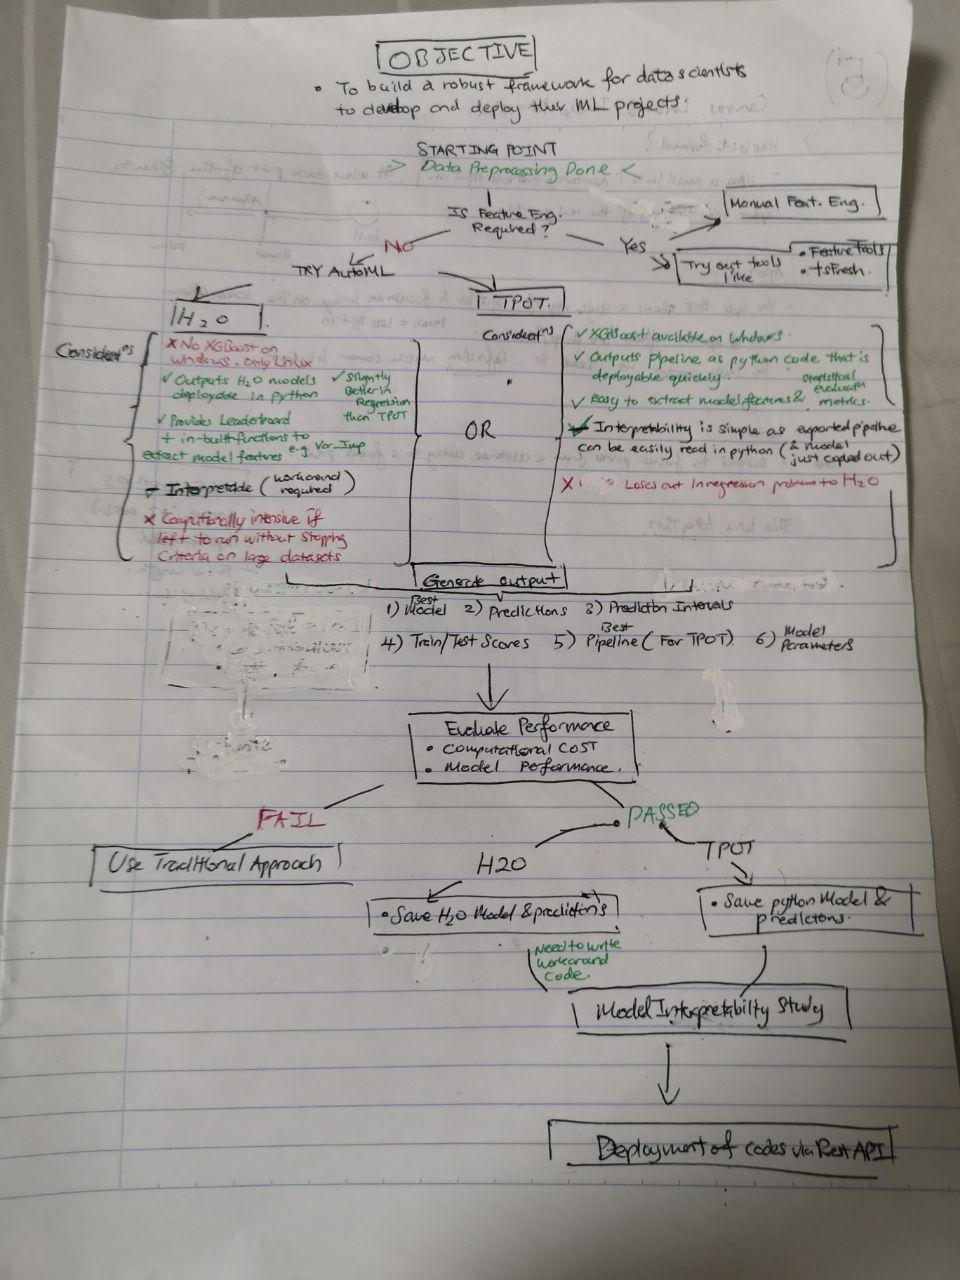 OBJECTIVE
• To build a robust framework for data scientists
to develop and deploy their ML projects.
STARTING POINT
> Data Preprocessing Done <
Is Feature Eng.
Required?
Manual Feat. Eng.
No
Yes
Try out tools
like
• Feature Tools
• tsFresh.
TRY AutoML
H2O
TPOT.
Consideratns
X No XGBoost on
windows. only Linux
✓ Outputs H2O models
deployable in python
✓ Slightly
Better in
Regression
than TPOT
✓ Provides Leaderboard
+ in-built-functions to
extract model features e.g Var_Imp
✓ Interpretable (workaround
required)
X Computionally intensive if
left to run without stopping
criteria on large datasets
OR
Consideratns
✓ XGBoost available on windows.
✓ Outputs pipeline as python code that is
deployable quickly.
✓ Easy to extract model features &
statistical
evaluatn
metrics.
✓ Interpretability is simple as exported pipeline
can be easily read in python (& model
just copied out)
X Loses out in regression problems to H2O
Generate output
1) Best Model 2) Predictions 3) Prediction Intervals
4) Train/Test Scores 5) Best Pipeline (For TPOT) 6) Model
Parameters
Evaluate Performance
• Computational COST
• Model Performance.
FAIL
PASSED
Use Traditional Approach
H2O
TPOT
• Save H2O Model & predictions
• Save python Model &
predictions.
Need to write
workaround
code.
Model Interpretability Study
Deployment of codes via Rest API